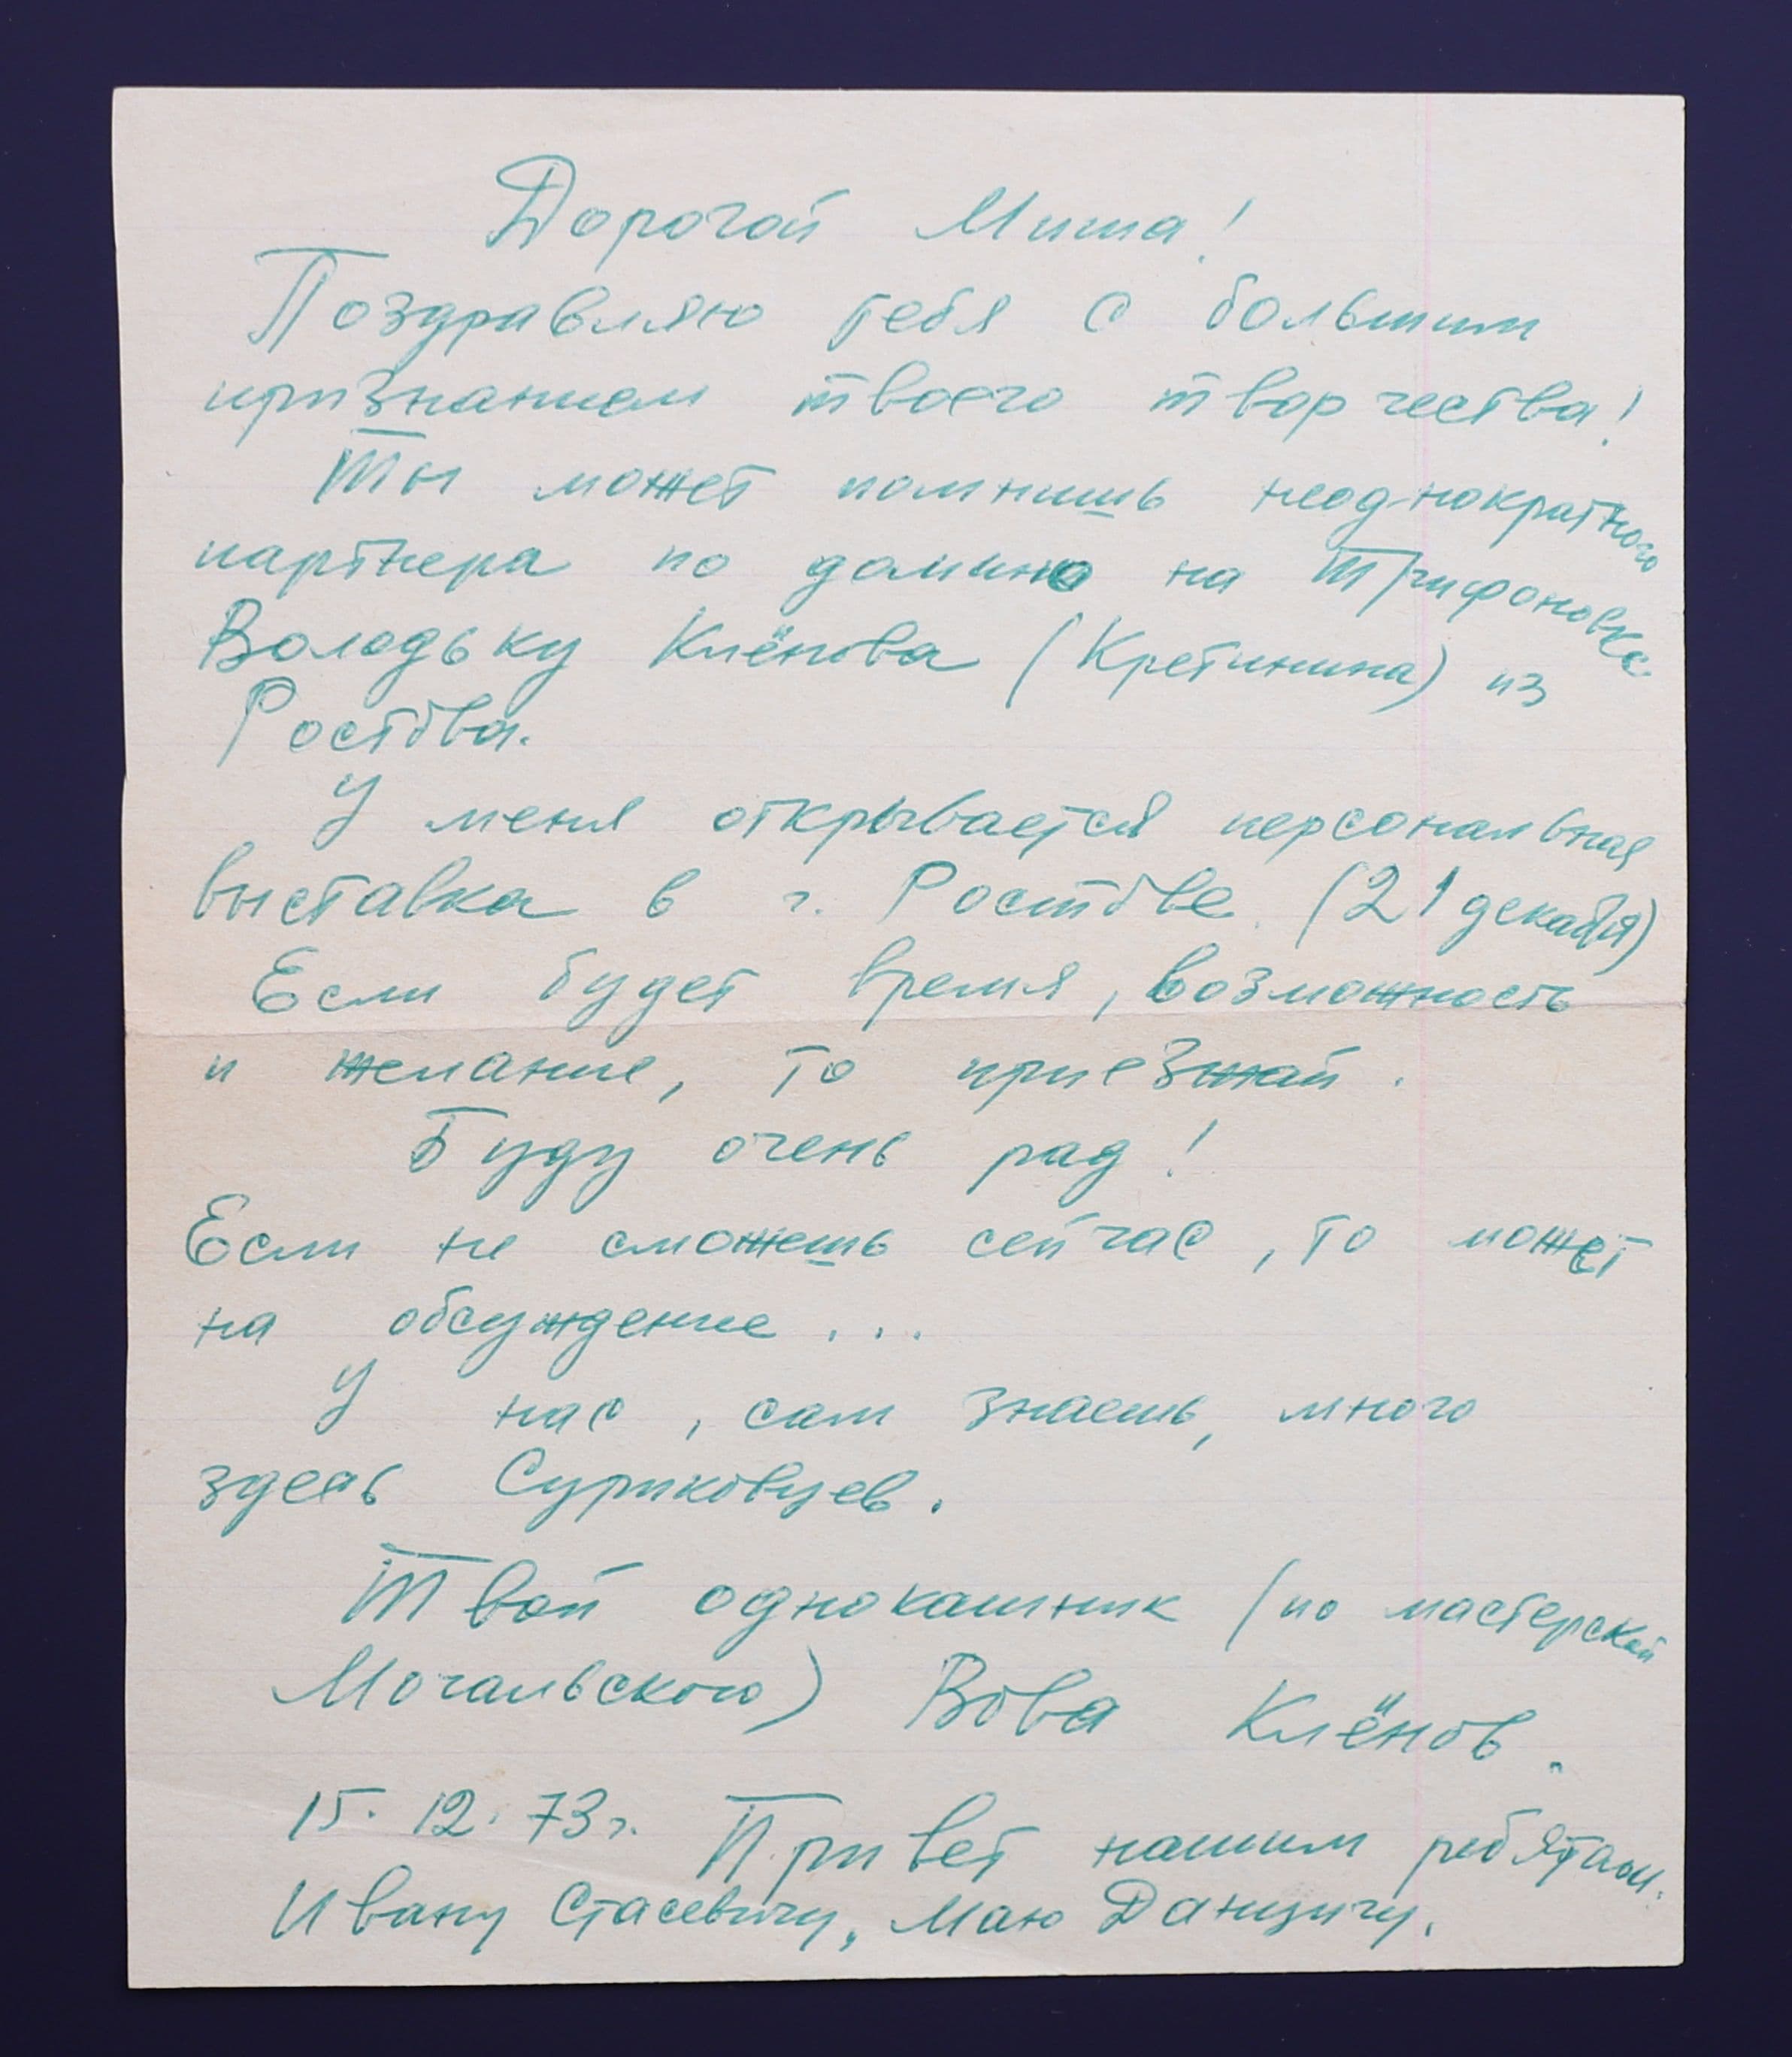 Дорогой Миша!
Поздравляю тебя с большим
признанием твоего творчества!
Ты может помнишь неоднократного
партнера по домино на Трифоновке
Володьку Клёнова (Кретинина) из
Ростова.
У меня открывается персональная
выставка в г. Ростове. (21 декабря)
Если будет время, возможность
и желание, то приезжай.
Буду очень рад!
Если не сможешь сейчас, то может
на обсуждение...
У нас, сам знаешь, много
здесь Суриковцев.
Твой однокашник (по мастерской
Мочальского) Вова Клёнов.
15. 12. 73 г. Привет нашим ребятам:
Ивану Стасевичу, Маю Данцигу.